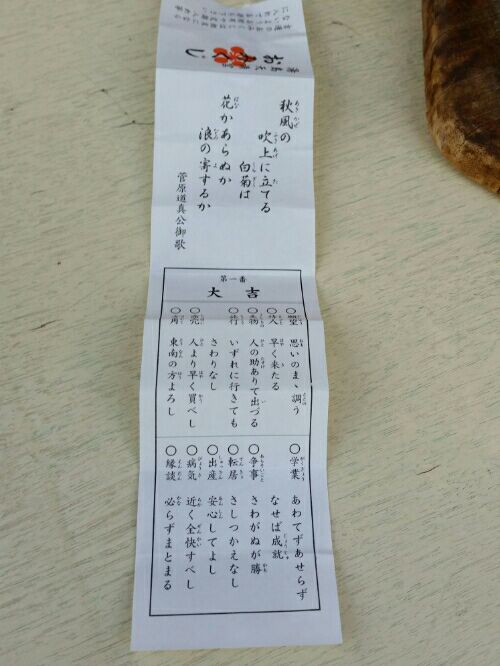 おみくじ
秋風の
吹上に立てる
白菊は
花かあらぬか
浪の寄するか
菅原道真公御歌
第一番
大吉
○望 思いのまゝ調う
○待人 早く来たる
○失物 人の助ありて出づる
○旅行 いずれに行きても
さわりなし
○商売 人より早く買べし
○方角 東南の方よろし
○学業 あわてずあせらず
なせば成就
○争事 さわがぬが勝
○転居 さしつかえなし
○出産 安心してよし
○病気 近く全快すべし
○縁談 必らずまとまる